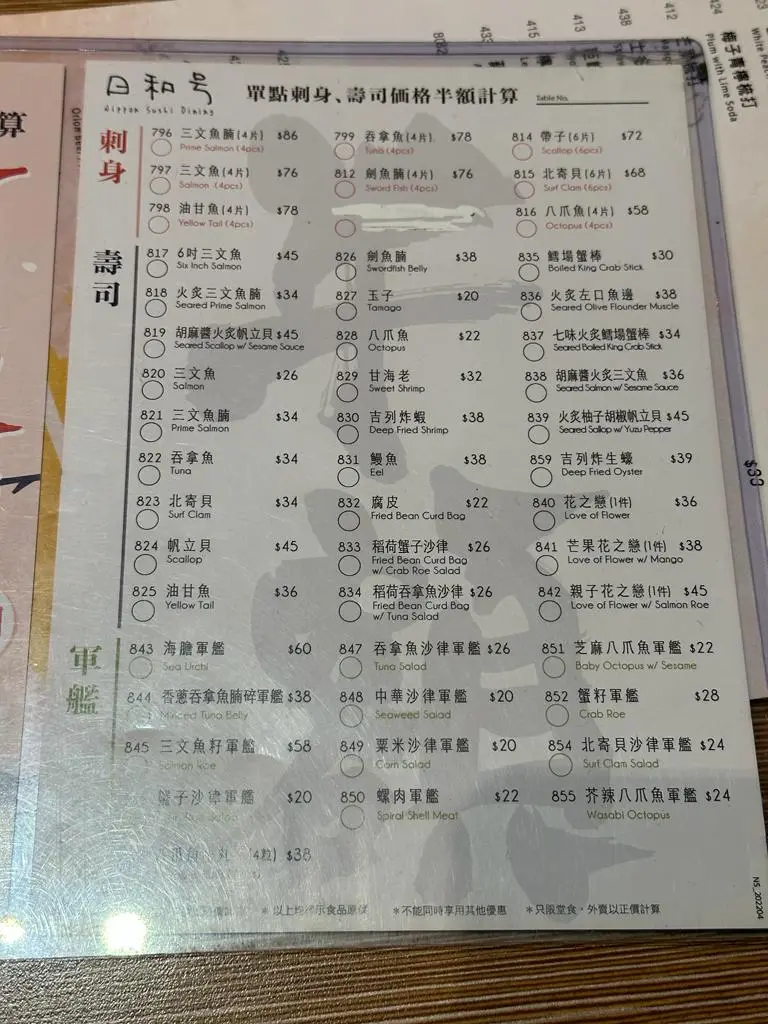 日和号
Nippon Sushi Dining
單點刺身、壽司価格半額計算
Table No.
刺身
796 三文魚腩(4片) $86
Prime Salmon (4pcs)
799 吞拿魚(4片) $78
Tuna (4pcs)
814 帶子(6片) $72
Scallop (6pcs)
797 三文魚(4片) $76
Salmon (4pcs)
812 劍魚腩(4片) $76
Sword Fish (4pcs)
815 北寄貝(6片) $68
Surf Clam (6pcs)
798 油甘魚(4片) $78
Yellow Tail (4pcs)
816 八爪魚(4片) $58
Octopus (4pcs)
壽司
817 6吋三文魚 $45
Six Inch Salmon
826 劍魚腩 $38
Swordfish Belly
835 鱈場蟹棒 $30
Boiled King Crab Stick
818 火炙三文魚腩 $34
Seared Prime Salmon
827 玉子 $20
Tamago
836 火炙左口魚邊 $38
Seared Olive Flounder Muscle
819 胡麻醬火炙帆立貝 $45
Seared Scallop w/ Sesame Sauce
828 八爪魚 $22
Octopus
837 七味火炙鱈場蟹棒 $34
Seared Boiled King Crab Stick
820 三文魚 $26
Salmon
829 甘海老 $32
Sweet Shrimp
838 胡麻醬火炙三文魚 $36
Seared Salmon w/ Sesame Sauce
821 三文魚腩 $34
Prime Salmon
830 吉列炸蝦 $38
Deep Fried Shrimp
839 火炙柚子胡椒帆立貝 $45
Seared Sallop w/ Yuzu Pepper
822 吞拿魚 $34
Tuna
831 鰻魚 $38
Eel
859 吉列炸生蠔 $39
Deep Fried Oyster
823 北寄貝 $34
Surf Clam
832 腐皮 $22
Fried Bean Curd Bag
840 花之戀(1件) $36
Love of Flower
824 帆立貝 $45
Scallop
833 稻荷蟹子沙律 $26
Fried Bean Curd Bag
w/ Crab Roe Salad
841 芒果花之戀(1件) $38
Love of Flower w/ Mango
825 油甘魚 $36
Yellow Tail
834 稻荷吞拿魚沙律 $26
Fried Bean Curd Bag
w/ Tuna Salad
842 親子花之戀(1件) $45
Love of Flower w/ Salmon Roe
軍艦
843 海膽軍艦 $60
Sea Urchi
847 吞拿魚沙律軍艦 $26
Tuna Salad
851 芝麻八爪魚軍艦 $22
Baby Octopus w/ Sesame
844 香蔥吞拿魚腩碎軍艦 $38
Minced Tuna Belly
848 中華沙律軍艦 $20
Seaweed Salad
852 蟹籽軍艦 $28
Crab Roe
845 三文魚籽軍艦 $58
Salmon Roe
849 粟米沙律軍艦 $20
Corn Salad
854 北寄貝沙律軍艦 $24
Surf Clam Salad
子沙律軍艦 $20
850 螺肉軍艦 $22
Spiral Shell Meat
855 芥辣八爪魚軍艦 $24
Wasabi Octopus
丸 (4粒) $38
＊以上均 示食品原價 ＊不能同時享用其他優惠 ＊只限堂食，外賣以正價計算
NS_202204
算
412
438
413
415
8082
424
梅子青檸梳打
Plum with Lime Soda
$33